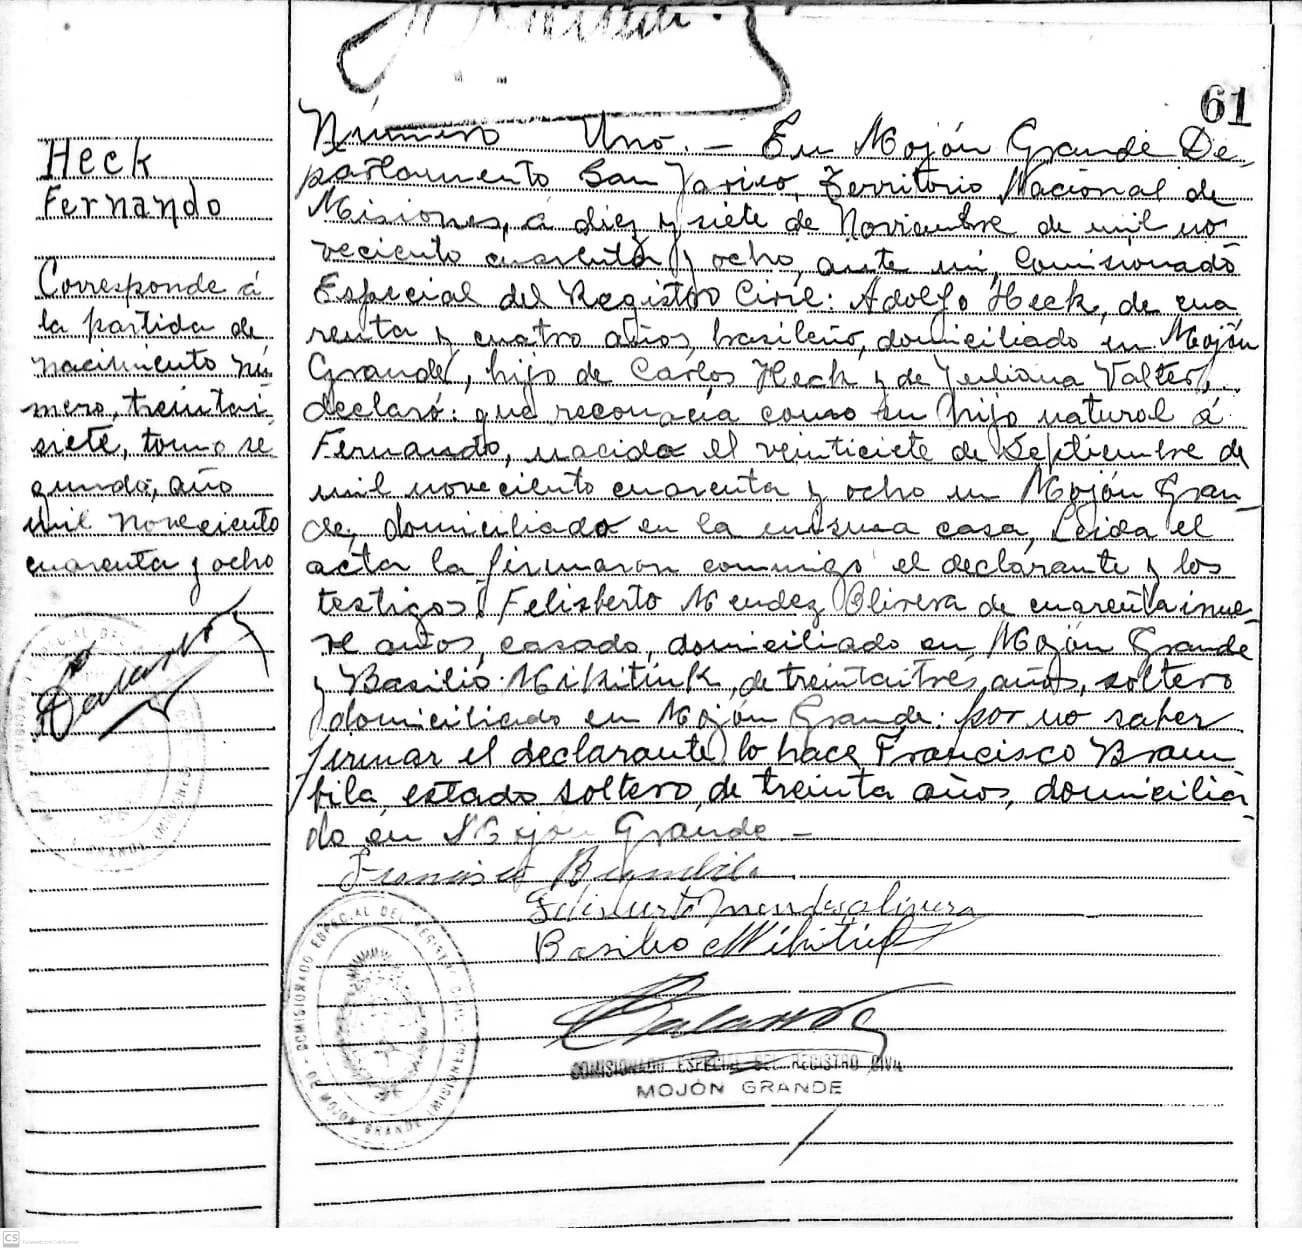 61
Heck
Fernando
Corresponde á
la partida de
nacimiento nú
mero, treintai
siete, tomo se
gundo, año
mil novecciento
cuarenta y ocho
Número Uno. - En Mojón Grande De-
partamento San Javier, Territorio Nacional de
Misiones, á diez y siete de Noviembre de mil no
veciento cuarenta y ocho, ante mi, Comisionado
Especial del Registro Civil: Adolfo Heck, de cua
renta y cuatro años, brasileño, domiciliado en Mojón
Grande, hijo de Carlos Heck y de Juliana Valter,
declaró: que reconocía como su hijo natural á
Fernando, nacido el veinticiete de Septiembre de
mil noveciento cuarenta y ocho en Mojón Gran-
de, domiciliado en la misma casa, Leida el
acta la firmaron conmigo el declarante y los
testigos: Felisberto Mendez Olivera de cuarentainue-
ve años, casado, domiciliado en Mojón Grande
y Basilio Mikitiuk, de treintaitres, años, soltero
domiciliado en Mojón Grande: por no saber
firmar el declarante lo hace Francisco Bram
bila, estado soltero, de treinta años, domicilia-
do en Mojón Grande -
Francisco Brambila
Felisberto Mendes olivera
Basilio Mikitiuk
COMISIONADO ESPECIAL DEL REGISTRO CIVIL
MOJÓN GRANDE
COMISIONADO ESPECIAL DEL REGISTRO CIVIL
CS